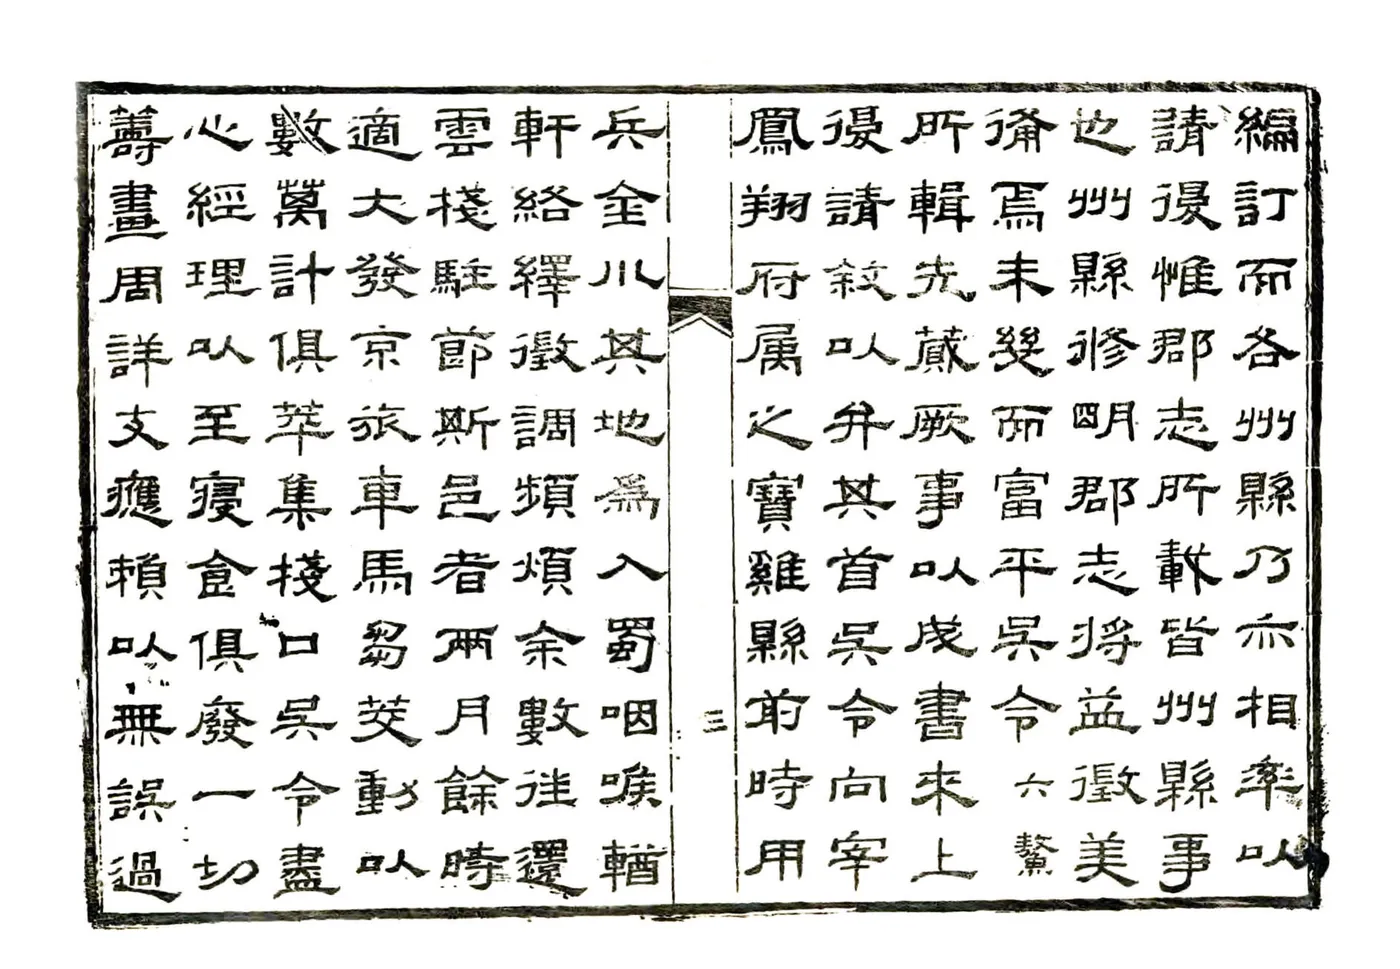 編訂而各州縣乃亦相率以
請復惟郡志所載皆州縣事
也州縣修明郡志將益徵美
備焉未幾而富平吳令六鰲
所輯先蕆厥事以成書來上
復請敘以弁其首吳令向宰
鳳翔府属之寶雞縣前時用
三
兵金川其地為入蜀咽喉輶
軒絡繹徵調頻煩余數往還
雲棧駐節斯邑者兩月餘時
適大發京旅車馬芻茭動以
數萬計俱萃集棧口吳令盡
心經理以至寢食俱廢一切
籌畫周詳支應賴以無誤過